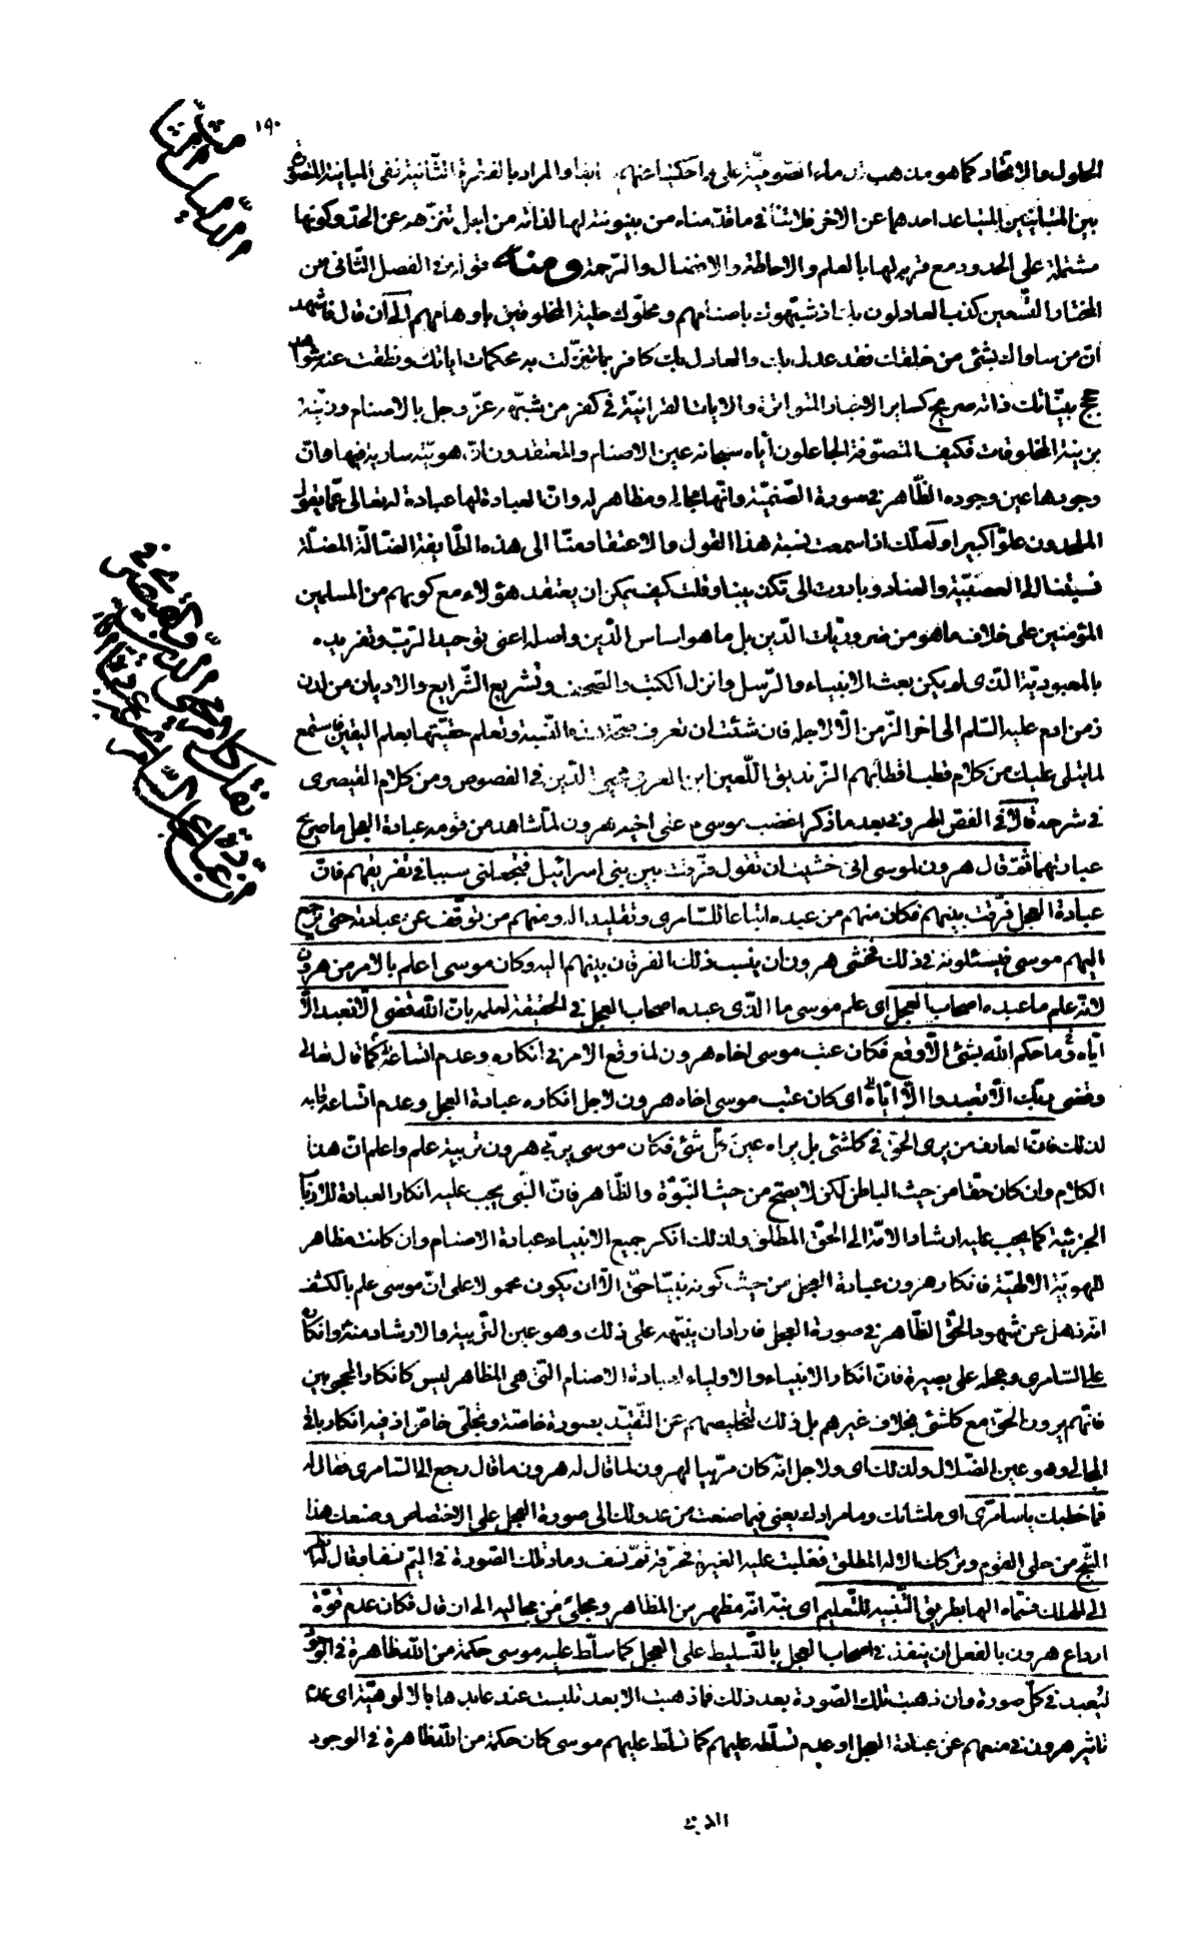 ١٩٠
الحلول والاتّحاد كما هو مذهب قدماء الصّوفيّة على ما حكيناه عنهم آنفا والمراد بالفقرة الثّانية نفى المباينة المتصوّرة
بين المتباينين المتباعد احدهما عن الاخر فلا ينافى ما قدّمناه من بينونة لها لذاته من اجل تنزّهه عن الحدّ وكونها
مشتملة على الحدود مع قربه لها بالعلم والاحاطة والافضال والرّحمة ومنه قوله فى الفصل الثّانى من
المختار التّسعين كذب العادلون بك اذ شبّهوك باصنامهم ونحلوك حلية المخلوقين باوهامهم الى ان قال فاشهد
انّ من ساواك بشئ من خلقك فقد عدل بك والعادل بك كافر بما تنزّلت به محكمات اياتك ونطقت عنه شواهد
حجج بيّناتك فانه صريح كساير الاخبار المتواترة والايات القرانيّة فى كفر من شبّهه عزّ وجل بالاصنام وزيّنه
بزينة المخلوقات فكيف المتصوّفة الجاعلون ايّاه سبحانه عين الاصنام والمعتقدون انّ هويّته سارية فيها وانّ
وجودها عين وجوده الظّاهر فى صورة الصّنميّة وانّها مجاليه ومظاهر له وانّ العبادة لها عبادة له تعالى عمّا يقول
الملحدون علوّا كبيرا ولعلّك اذا سمعت نسبة هذا القول والاعتقاد منّا الى هذه الطّايفة الضّالّة المضلّة
نسبتنا الى العصبيّة والعناد وبادرت الى تكذيبنا وقلت كيف يمكن ان يعتقد هؤلاء مع كونهم من المسلمين
المؤمنين على خلاف ما هو من ضروريّات الدّين بل ما هو اساس الدّين واصله اعنى توحيد الرّبّ وتفريده
بالمعبوديّة الّذى لم يكن بعث الانبياء والرّسل وانزل الكتب والصّحف وتشريع الشّرايع والاديان من لدن
زمن ادم عليه السّلم الى اخر الزّمن الّا لاجله فان شئت ان تعرف صحّة هذه النّسبة وتعلم حقيّتها بعلم اليقين فاستمع
لما يتلى عليك من كلام قطب اقطابهم الزّنديق اللّعين ابن العربى محيى الدّين فى الفصوص ومن كلام القيصرى
فى شرحه قالا فى الفص الهرونى بعد ما ذكرا غضب موسى م على اخيه هرون لمّا شاهد من قومه عبادة العجل ما صريح
عبارتهما ثمّ قال هرون لموسى انى خشيت ان تقول فرّقت بين بنى اسرائيل فتجعلنى سببا فى تفريقهم فانّ
عبادة العجل فرّقت بينهم فكان منهم من عبده اتباعا للسّامرى وتقليدا له ومنهم من توقّف عن عبادته حتى يرجع
اليهم موسى فيسئلونه فى ذلك فخشى هرون ان ينسب ذلك الفرقان بينهم اليه وكان موسى اعلم بالامر من هرون
لانّه علم ما عبده اصحاب العجل اى علم موسى ما الّذى عبده اصحاب العجل فى الحقيقة لعلمه بانّ الله قضى الّا نعبد الّا
ايّاه وما حكم الله بشئ الّا وقع فكان عتب موسى اخاه هرون لما وقع الامر فى انكاره وعدم اتساعه كما قال تعالى
وقضى ربّك الّا تعبدوا الّا ايّاه اى كان عتب موسى اخاه هرون لاجل انكاره عبادة العجل وعدم اتّساع قلبه
لذلك فانّ العارف من يرى الحقّ فى كلّ شئ بل يراه عين كلّ شئ فكان موسى يربّى هرون تربية علم واعلم انّ هذا
الكلام وان كان حقّا من حيث الباطن لكن لا يصحّ من حيث النّبوّة والظّاهر فانّ النّبى يجب عليه انكار العبادة للارباب
الجزئية كما يجب عليه ارشاد الامّة الى الحقّ المطلق ولذلك انكر جميع الانبياء عبادة الاصنام وان كانت مظاهر
للهويّة الالهيّة فانكار هرون عبادة العجل من حيث كونه نبيّا حقّ الّا ان يكون محمولا على انّ موسى علم بالكشف
انّه ذهل عن شهود الحقّ الظّاهر فى صورة العجل فاراد ان ينبّهه على ذلك وهو عين التّربية والارشاد منه وانكاره
على السّامرى وعجله على بصيرة فانّ انكار الانبياء والاولياء لعبادة الاصنام الّتى هى المظاهر ليس كانكار المحجوبين
فانّهم يرون الحقّ مع كلّ شئ بخلاف غيرهم بل ذلك لتخليصهم عن التّقيّد بصورة خاصّة ومجلى خاصّ اذ فيه انكار باقى
المجالى وهو عين الضّلال ولذلك اى ولاجل انّه كان مربّيا لهرون لما قال له هرون ما قال رجع الى السّامرى فقال له
فما خطبك يا سامرّى اى ما شانك وما مرادك يعنى فيما صنعت من عدولك الى صورة العجل على الاختصاص وصنعك هذا
الشّبح من حلى القوم وتركك الاله المطلق فغلبت عليه الغيرة فحرّقه ثمّ نسف رماد تلك الصّورة فى اليّم نسفا وقال له انظر
الى الهك فسمّاه الها بطريق التّنبيه للتّعليم اى نبّه انّه مظهر من المظاهر ومجلى من مجاليه الى ان قال فكان عدم قوّة
ارداع هرون بالفعل ان ينفذ فى اصحاب العجل بالتّسليط على العجل كما سلّط عليه موسى حكمة من الله ظاهرة فى الوجود
ليعبد فى كلّ صورة وان ذهبت تلك الصّورة بعد ذلك فما ذهبت الا بعد تلبست عند عابدها بالالوهيّة اى عدم
تاثير هرون فى منعهم عن عبادة العجل وعدم تسلّطه عليهم كما تسلّط عليهم موسى كان حكمة من الله ظاهرة فى الوجود